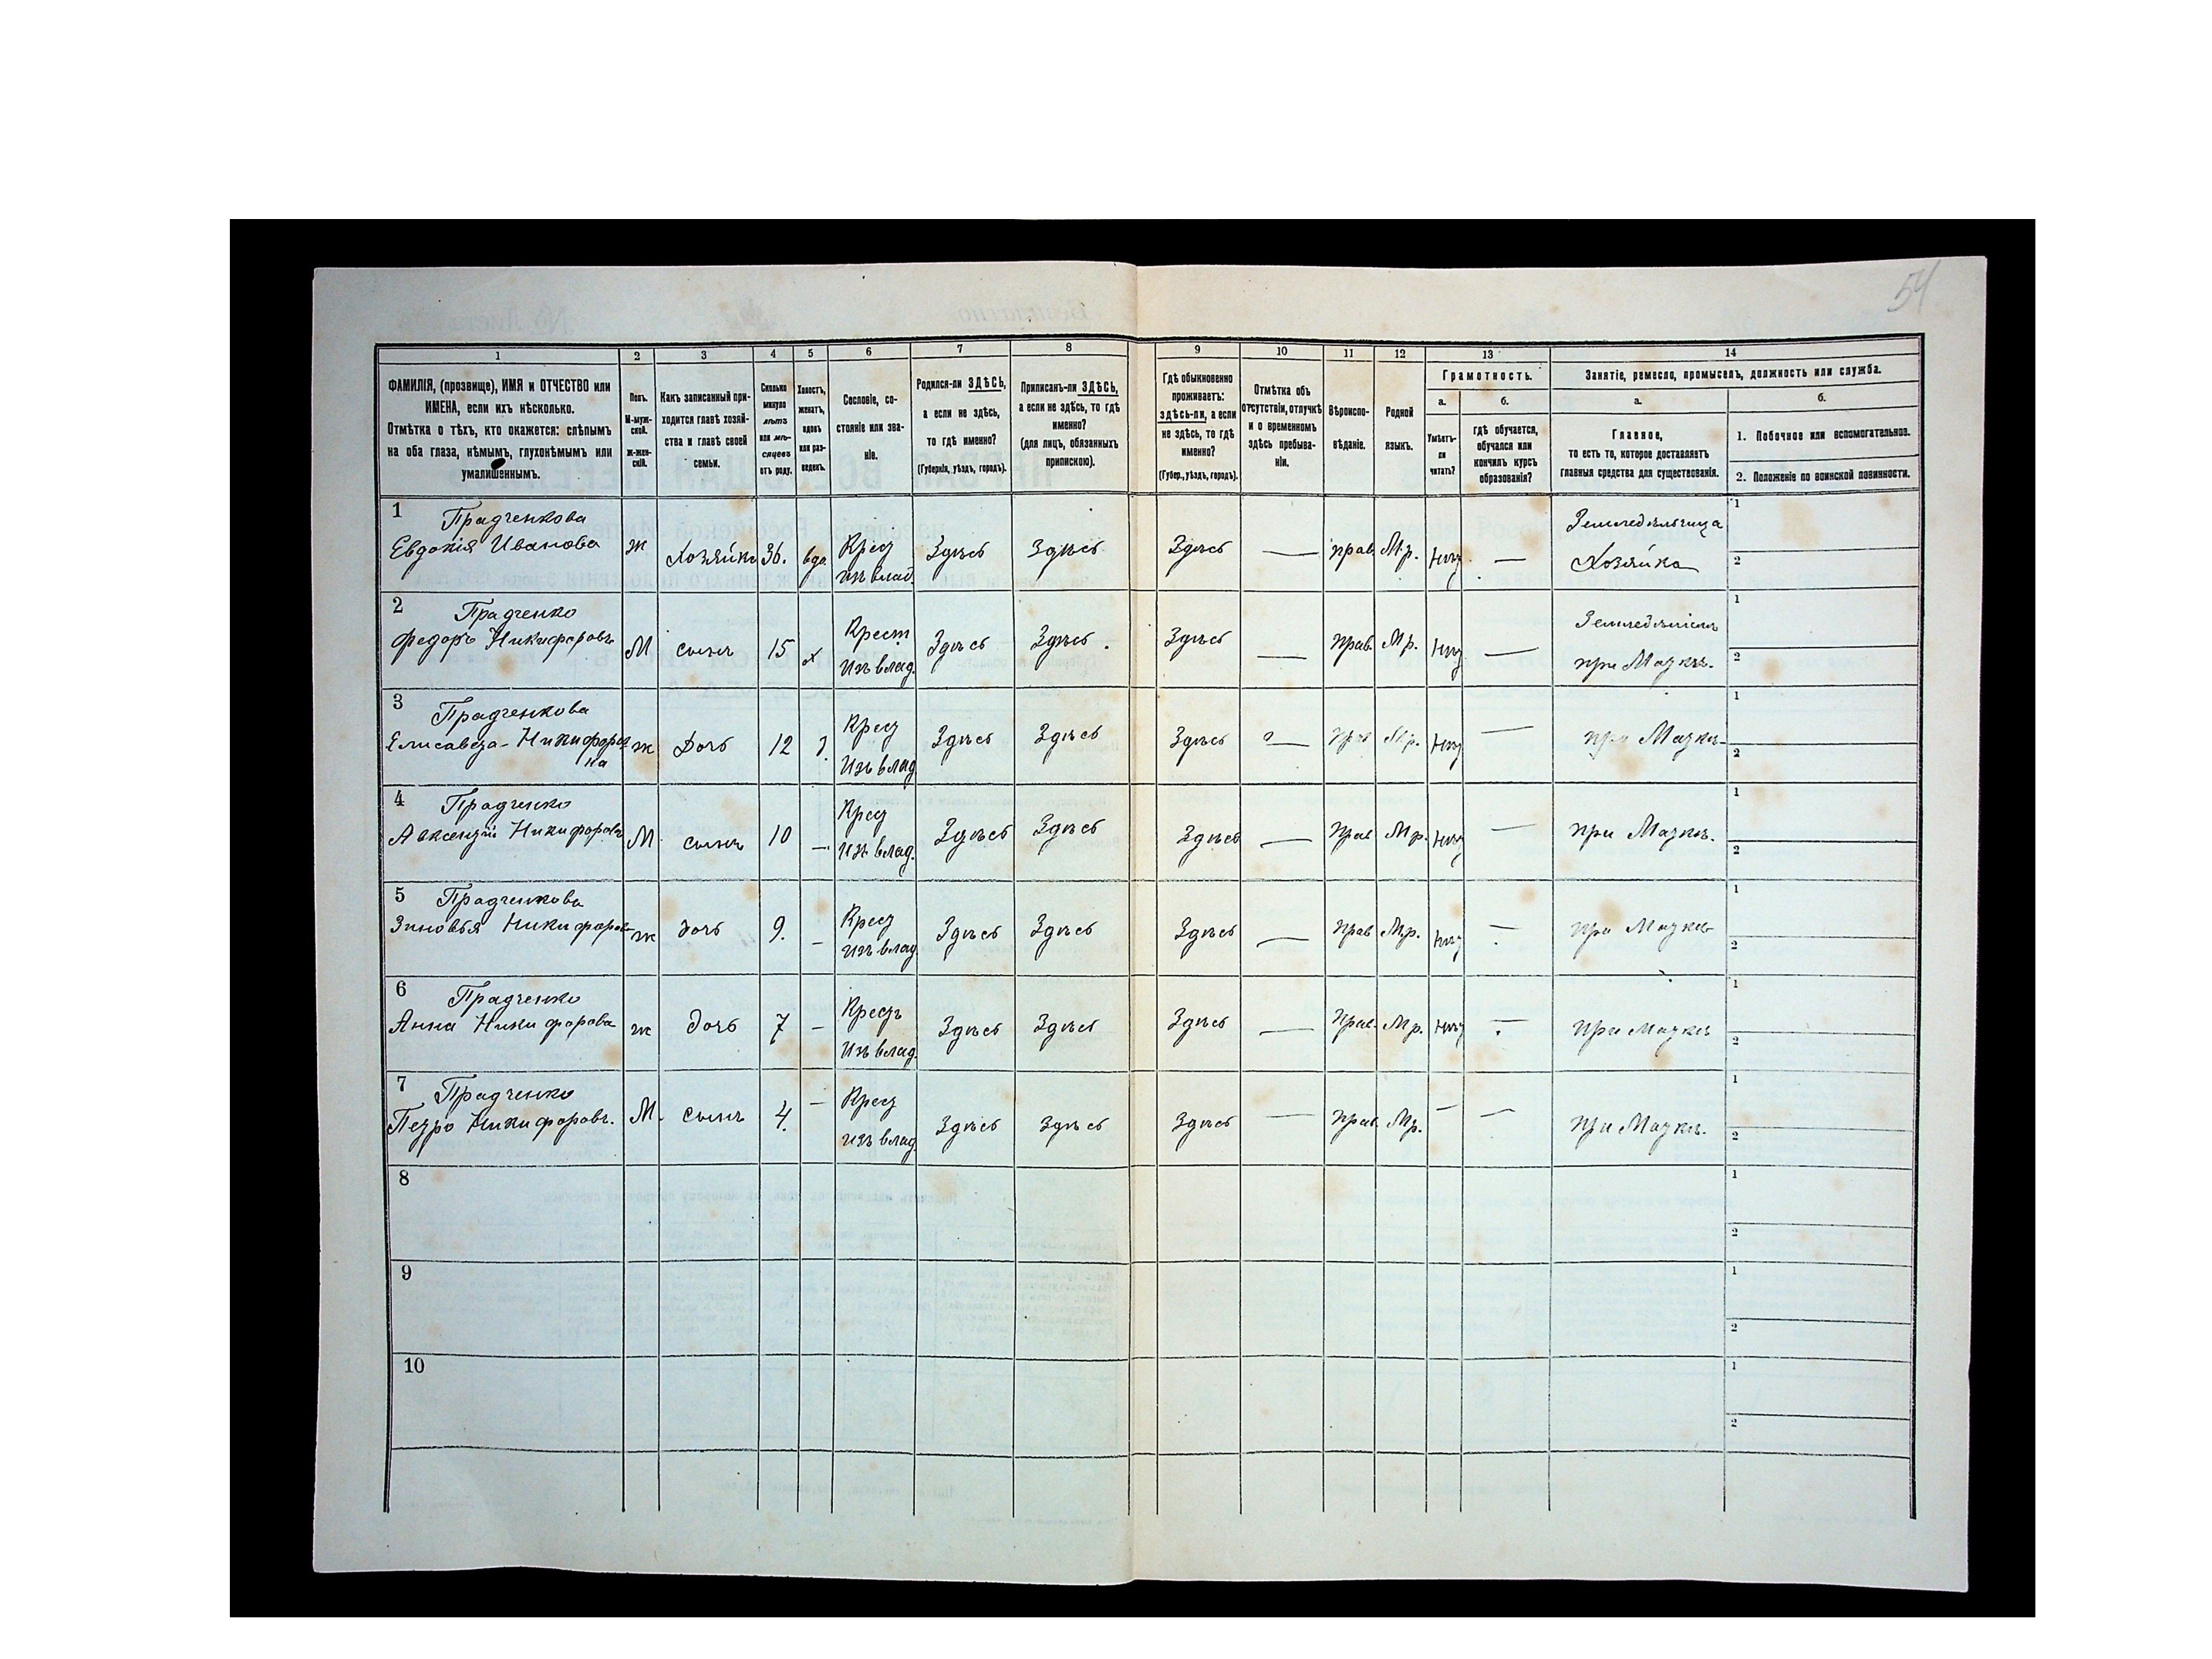 54
1 2 3 4 5 6 7 8 9 10 11 12 13 14
ФАМИЛІЯ, (прозвище), ИМЯ и ОТЧЕСТВО или
ИМЕНА, если ихъ нѣсколько.
Отмѣтка о тѣхъ, кто окажется: слѣпымъ
на оба глаза, нѣмымъ, глухонѣмымъ или
умалишеннымъ.
Полъ.
М-муж-
ской.
ж-жен-
скій.
Какъ записанный при-
ходится главѣ хозяй-
ства и главѣ своей
семьи.
Сколько
минуло
лѣтъ
или мѣ-
сяцевъ
отъ роду.
Холостъ,
женатъ,
вдовъ
или раз-
веденъ.
Сословіе, со-
стояніе или зва-
ніе.
Родился-ли ЗДѢСЬ,
а если не здѣсь,
то гдѣ именно?
(Губернія, уѣздъ, городъ).
Приписанъ-ли ЗДѢСЬ,
а если не здѣсь, то гдѣ
именно?
(для лицъ, обязанныхъ
припискою).
Гдѣ обыкновенно
проживаетъ:
здѣсь-ли, а если
не здѣсь, то гдѣ
именно?
(Губер., уѣздъ, городъ).
Отмѣтка объ
отсутствіи, отлучкѣ
и о временномъ
здѣсь пребыва-
ніи.
Вѣроиспо-
вѣданіе.
Родной
языкъ.
Грамотность.
а.
Умѣетъ-
ли
читать?
б.
гдѣ обучается,
обучался или
кончилъ курсъ
образованія?
Занятіе, ремесло, промыселъ, должность или служба.
а.
Главное,
то есть то, которое доставляетъ
главныя средства для существованія.
б.
1. Побочное или вспомогательное.
2. Положеніе по воинской повинности.
1 Прадченкова
Евдокія Иванова ж Хозяйка 36. вдо. Крест изъ влад. Здѣсь Здѣсь Здѣсь — прав Мр. нѣт — Земледѣльчица
Хозяйка
1
2
2 Прадченко
Федоръ Никифоровъ М сынъ 15 х Крест Изъ влад. Здѣсь Здѣсь. Здѣсь — прав. Мр. нѣт — Земледѣліемъ
при Маткѣ.
1
2
3 Прадченкова
Елисавета Никифоров
на ж Дочь 12 Крест Изъ влад Здѣсь Здѣсь Здѣсь — прав Мр. нѣт — при Маткѣ
1
2
4 Прадченко
Авксентій Никифоровъ М сынъ 10 — Крест изъ влад. Здѣсь Здѣсь Здѣсь — Прав Мр. нѣт — при Маткѣ.
1
2
5 Прадченкова
Зиновья Никифоров ж дочь 9. — Крест изъ влад Здѣсь Здѣсь Здѣсь — Прав Мр. нѣт — при Маткѣ
1
2
6 Прадченко
Анна Никифорова ж дочь 7 — Крестъ Изъ влад. Здѣсь Здѣсь Здѣсь — Прав. Мр. нѣт — при Маткѣ
1
2
7 Прадченко
Петро Никифоровъ. М. сынъ 4. — Крест изъ влад. Здѣсь Здѣсь Здѣсь — Прав Мр. — — при Маткѣ.
1
2
8
1
2
9
1
2
10
1
2